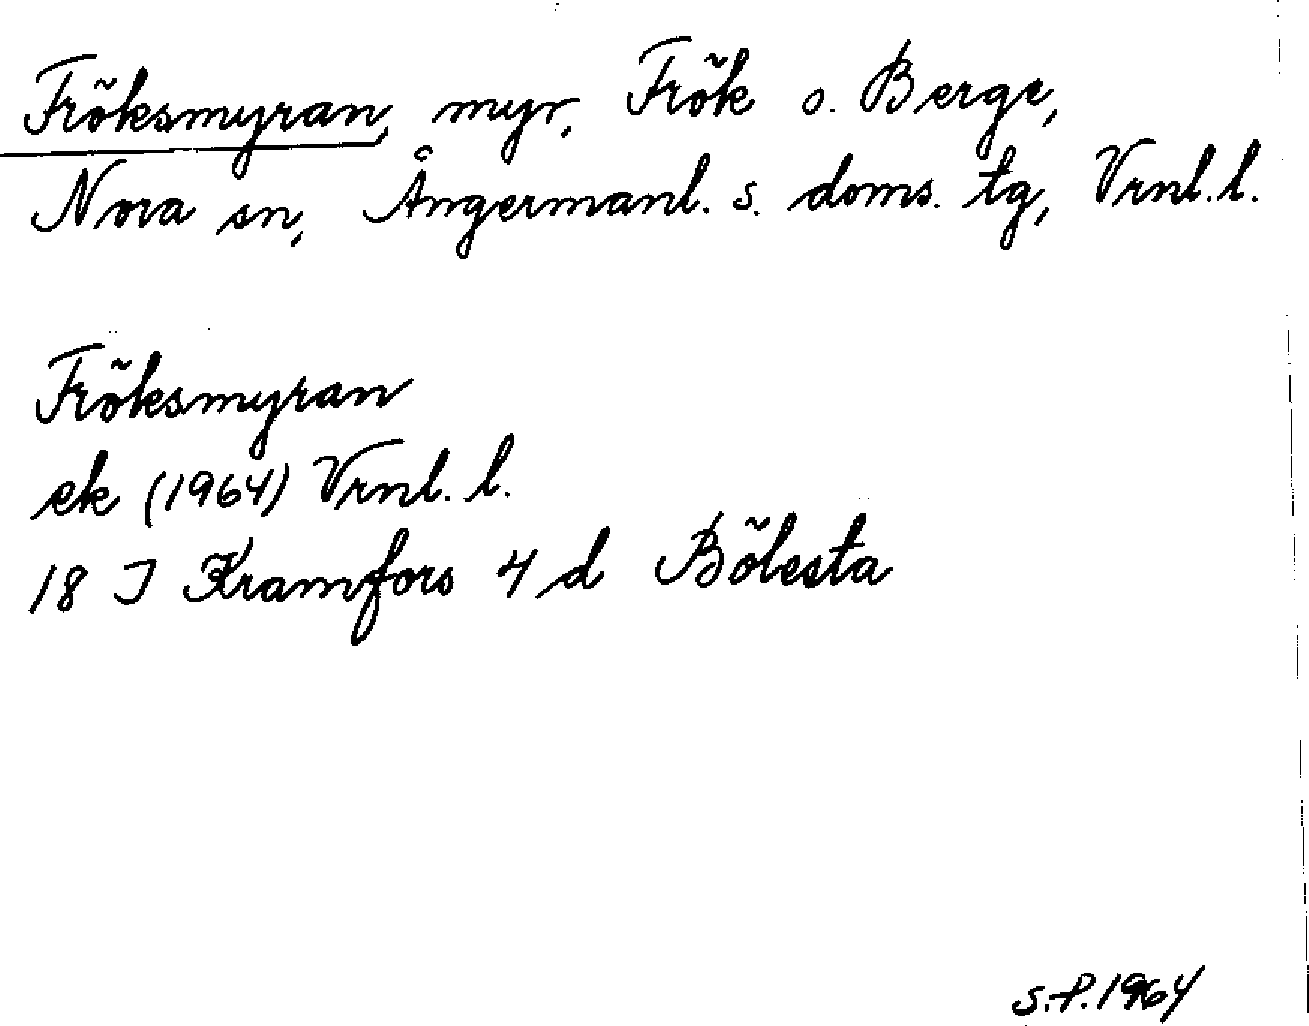 Fröksmyran, myr, Frök o. Berge,
Nora sn, Ångermanl. s. doms. tg, Vrnl. l.
Fröksmyran
ek (1964) Vrnl. l.
18 J Kramfors 4 d Bölesta
S.P. 1964